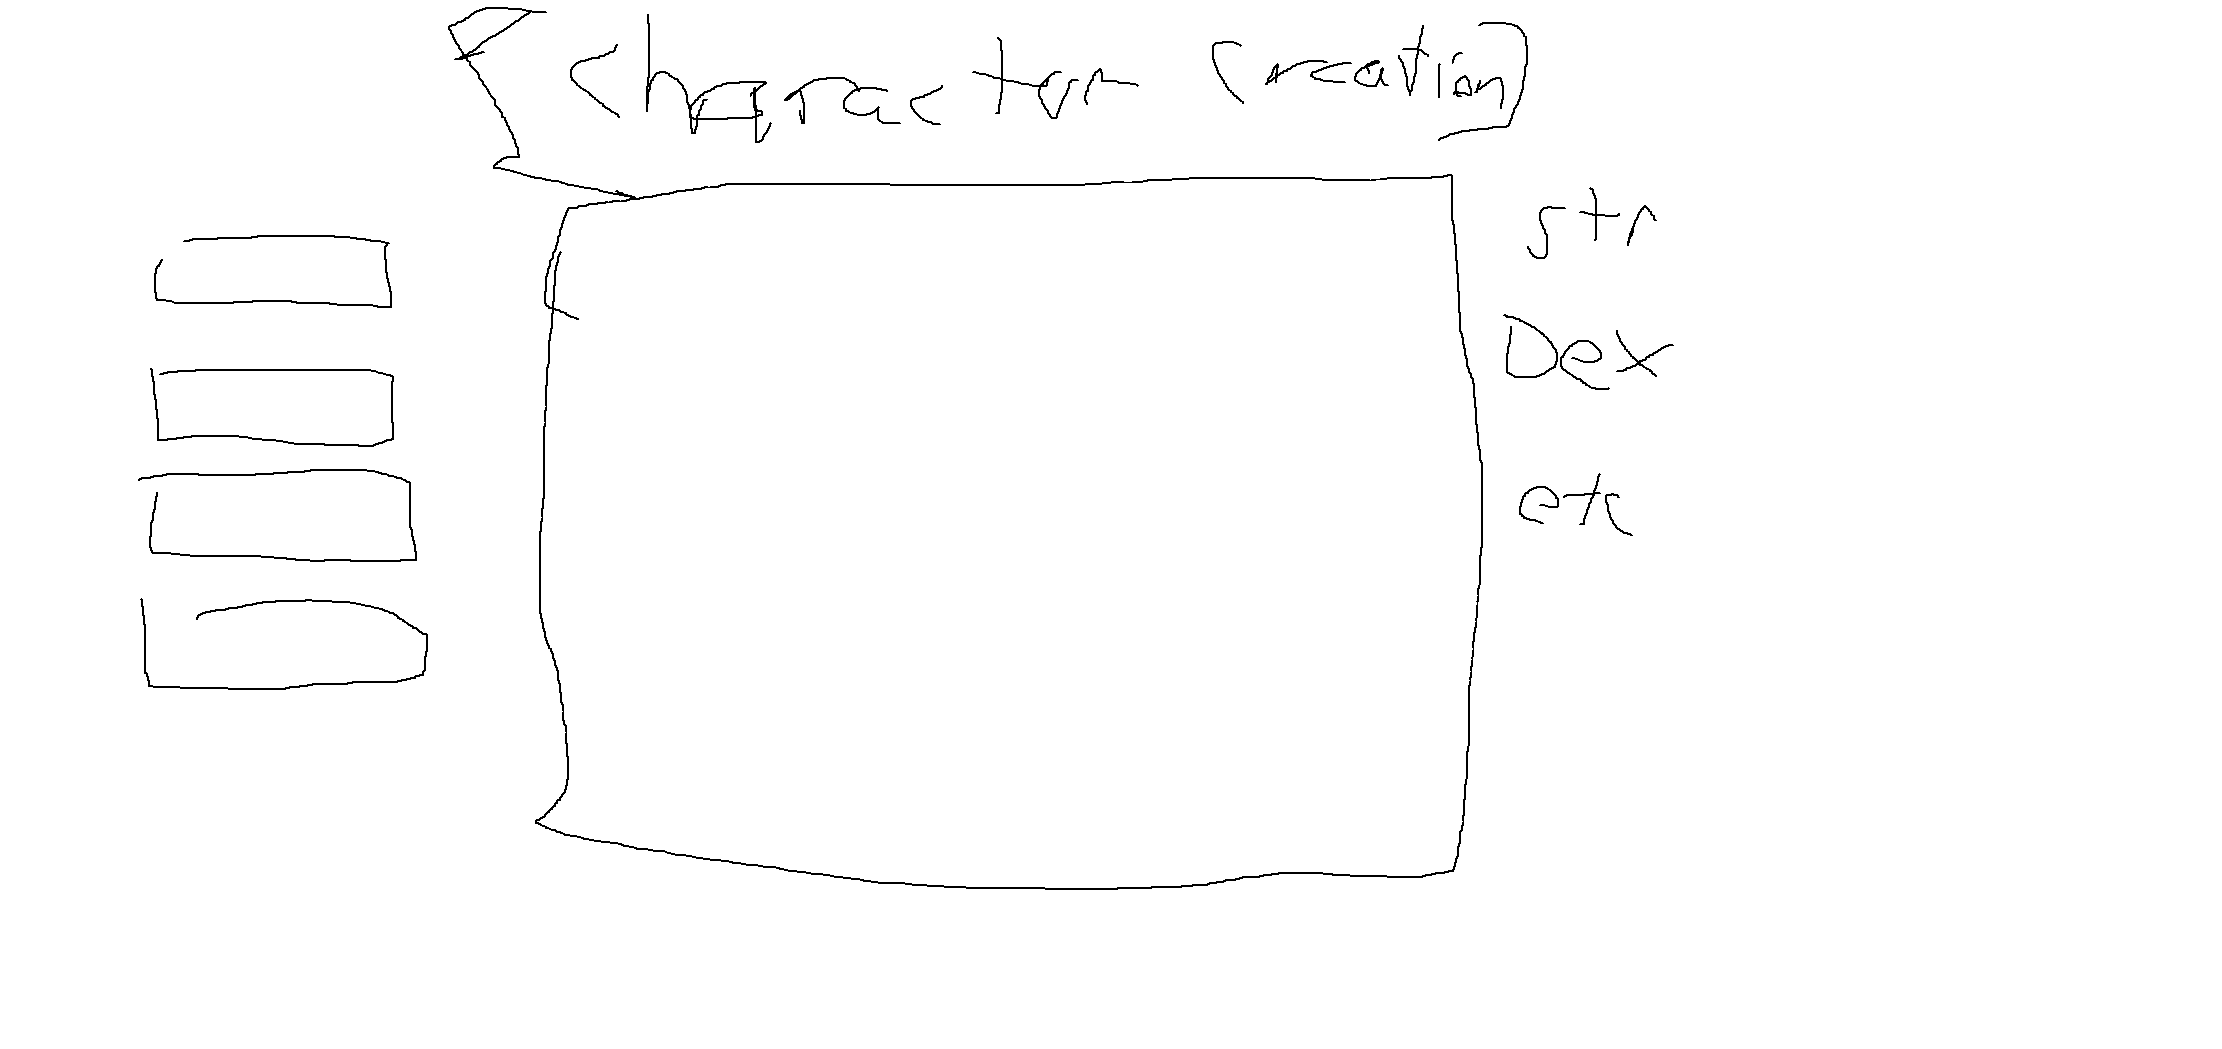 Character Creation
str
Dex
etc